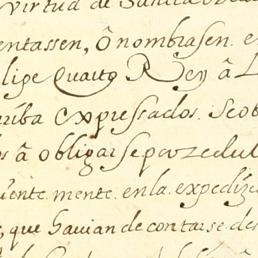 virtud de
entassen, ô nombrasen. e
elipe Quarto Rey â L
rriba expressados. Se ob
os â obligarse por zedul
quente mente. en la expediz
, que havian de contarse des